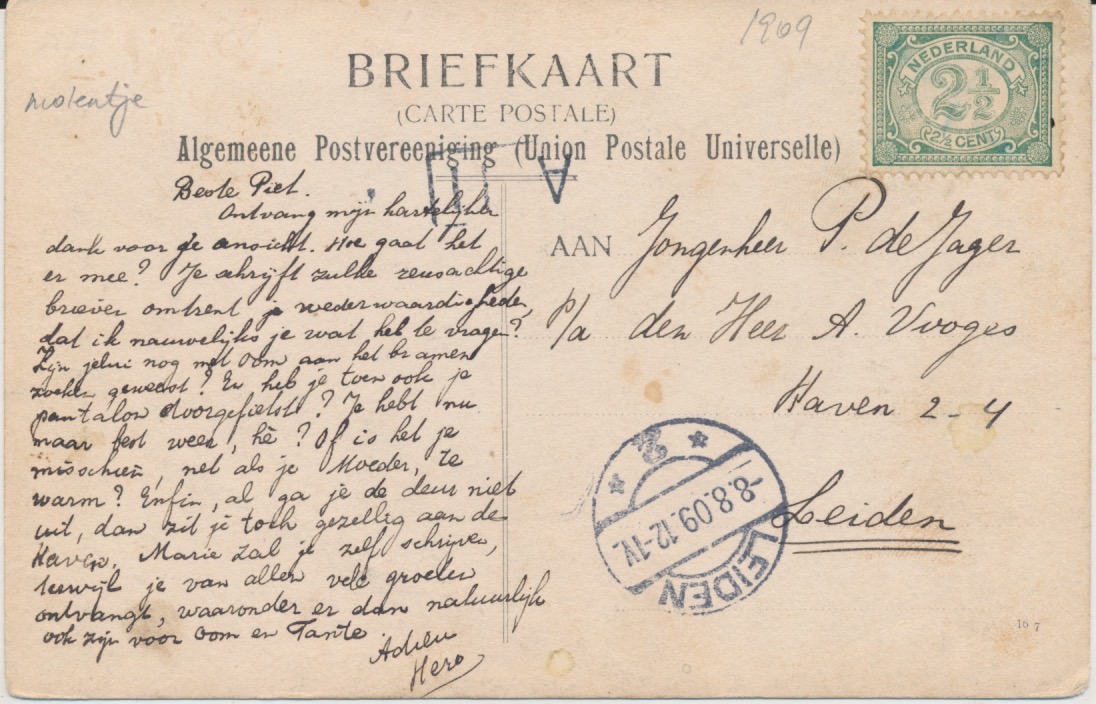 1909
molentje
BRIEFKAART
(CARTE POSTALE)
Algemeene Postvereeniging (Union Postale Universelle)
NEDERLAND
2 1/2
(2 1/2 CENT)
A II
Beste Piet.
Ontvang mijn hartelijken
dank voor je ansicht. Hoe gaat het
er mee? Je schrijft zulke reusachtige
brieven omtrent je wederwaardigheden,
dat ik nauwelijks je wat heb te vragen?
Zijn jelui nog met Oom aan het bramen
zoeken geweest? En heb je toen ook je
pantalon doorgefietst? Je hebt nu
maar best weer, hè? Of is het je
misschien, net als je Moeder, te
warm? Enfin, al ga je de deur niet
uit, dan zit je toch gezellig aan de
Haven. Marie zal je zelf schrijven,
terwijl je van allen vele groeten
ontvangt, waaronder er dan natuurlijk
ook zijn voor Oom en Tante.
Adieu
Hero
AAN Jongenheer P. de Jager
p/a den Heer A. Vroges
Haven 2-4
Leiden
2
-8.8.09.12-1V.
LEIDEN
16 7